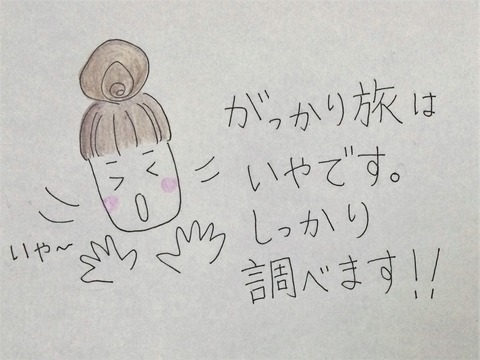 がっかり旅は
いやです。
しっかり
調べます!!
いや〜